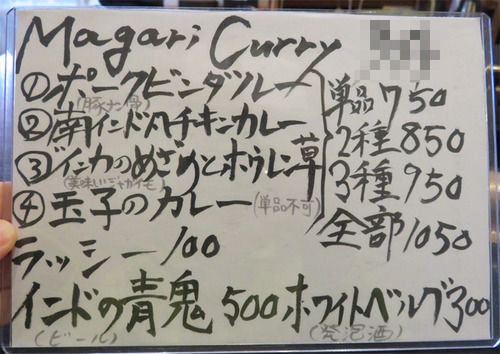 Magari Curry
①ポークビンダルー
(豚ナン骨)
②南インド八チキンカレー
③インカのめざめとホウレン草
(美味いジャガイモ)
④玉子のカレー(単品不可)
単品750
2種850
3種950
全部1050
ラッシー100
インドの青鬼500 ホワイトベルグ300
(ビール) (発泡酒)